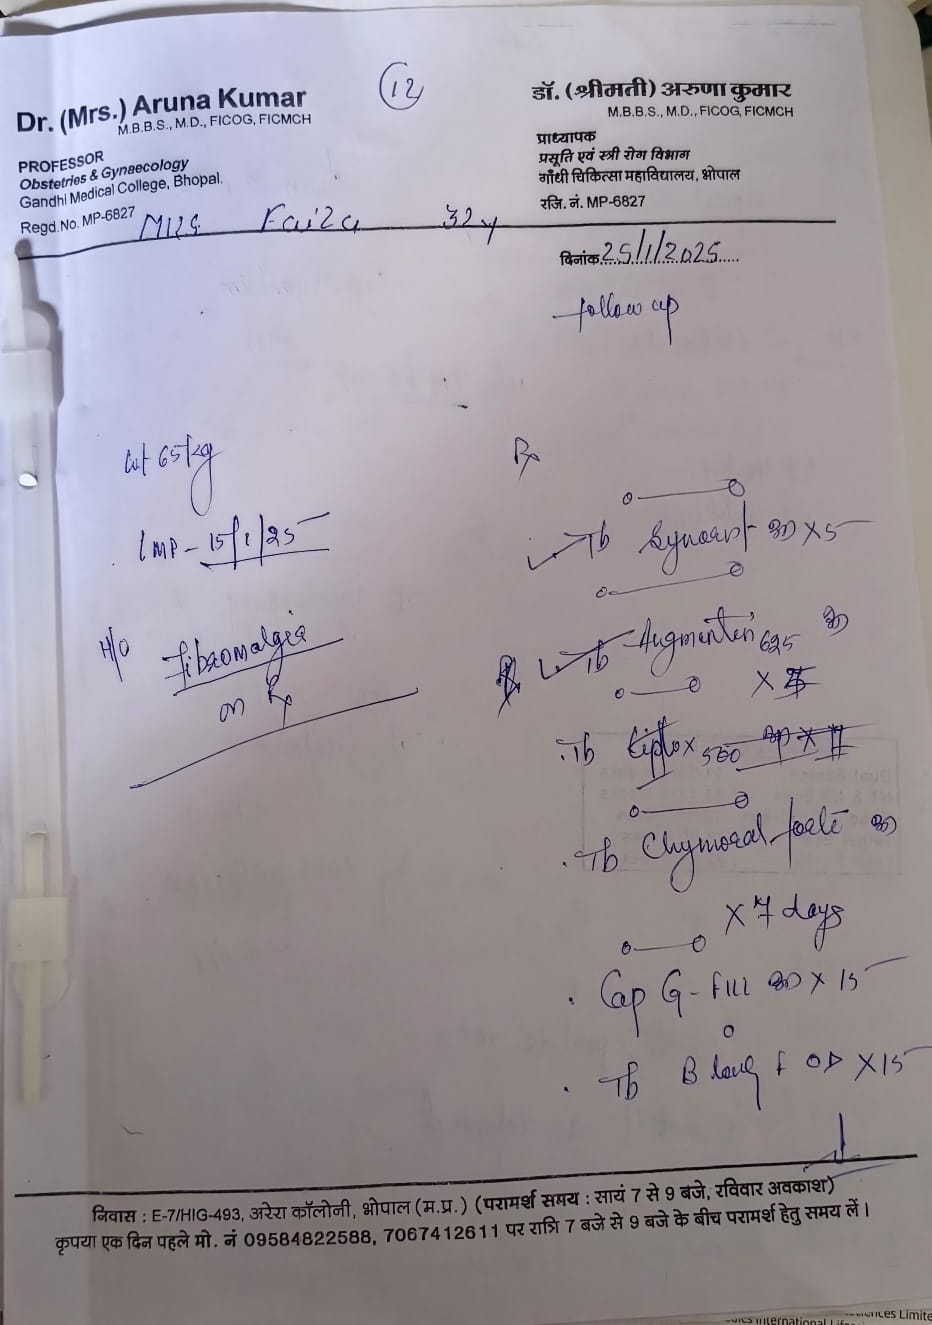 12
Dr. (Mrs.) Aruna Kumar
M.B.B.S., M.D., FICOG, FICMCH
PROFESSOR
Obstetries & Gynaecology
Gandhi Medical College, Bhopal.
Regd.No. MP-6827
डॉ. (श्रीमती) अरुणा कुमार
M.B.B.S., M.D., FICOG, FICMCH
प्राध्यापक
प्रसूति एवं स्त्री रोग विभाग
गाँधी चिकित्सा महाविद्यालय, भोपाल
रजि. नं. MP-6827
Mrs. Faiza 32y
दिनांक 25/1/2025
follow up
Wt 65kg
LMP - 15/1/25
H/O fibromalgia
on Rx
Rx
Tb BD x 5
Tb Augmentin 625 BD
x
Tb 500
Tb Chymoral forte BD
x 7 days
Cap G-fill BD x 15
Tb B long F OD x 15
निवास : E-7/HIG-493, अरेरा कॉलोनी, भोपाल (म.प्र.) (परामर्श समय : सायं 7 से 9 बजे, रविवार अवकाश)
कृपया एक दिन पहले मो. नं 09584822588, 7067412611 पर रात्रि 7 बजे से 9 बजे के बीच परामर्श हेतु समय लें।